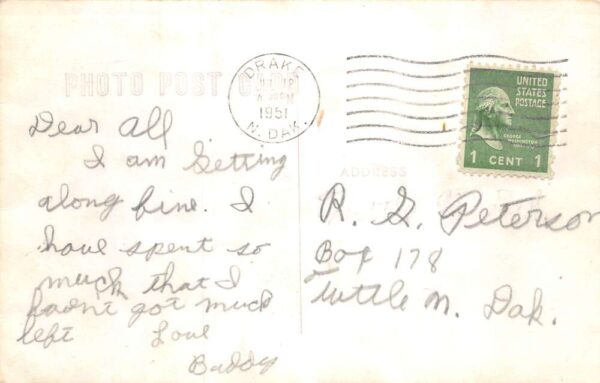 PHOTO POST CARD
DRAKE
1951
N. DAK.
UNITED
STATES
POSTAGE
GEORGE
WASHINGTON
1 CENT 1
Dear All
I am Getting
along fine. I
have spent so
much that I
hadn't got much
left Love
Buddy
ADDRESS
R. G. Peterson
Box 178
Tuttle N. Dak.